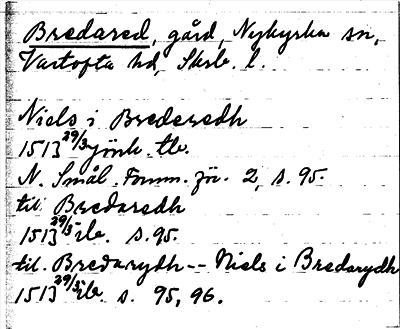 Bredared, gård, Nykyrka sn,
Vartofta hd, Skrb. l.
Niels i Brederedh
1513 29/3 Jönk. tb.
N. Smål. Fornm. för. 2, s. 95.
till Bredaredh
1513 29/5 ib. s. 95.
till Bredarydh -- Niels i Bredarydh
1513 29/5 ib. s. 95, 96.